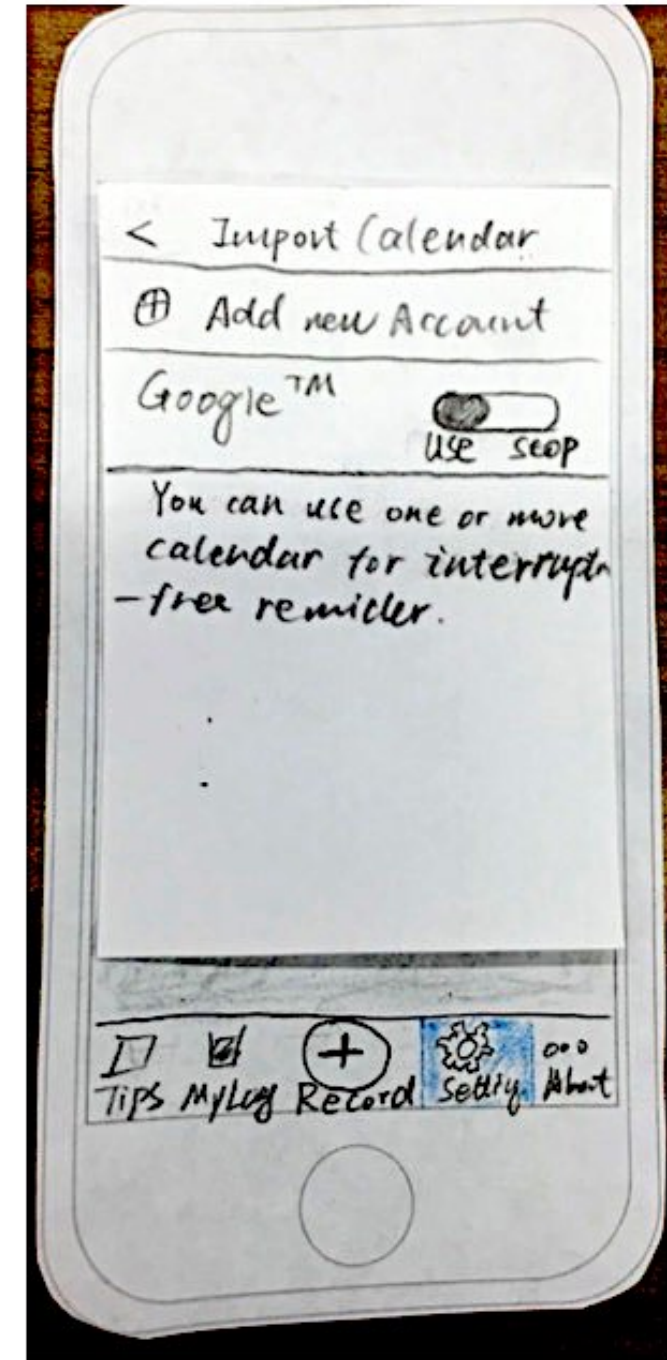 < Import Calendar
⊕ Add new Account
Google™
Use Stop
You can use one or more
calendar for interruptn
-free remider.
Tips MyLog + Record Settig ooo About